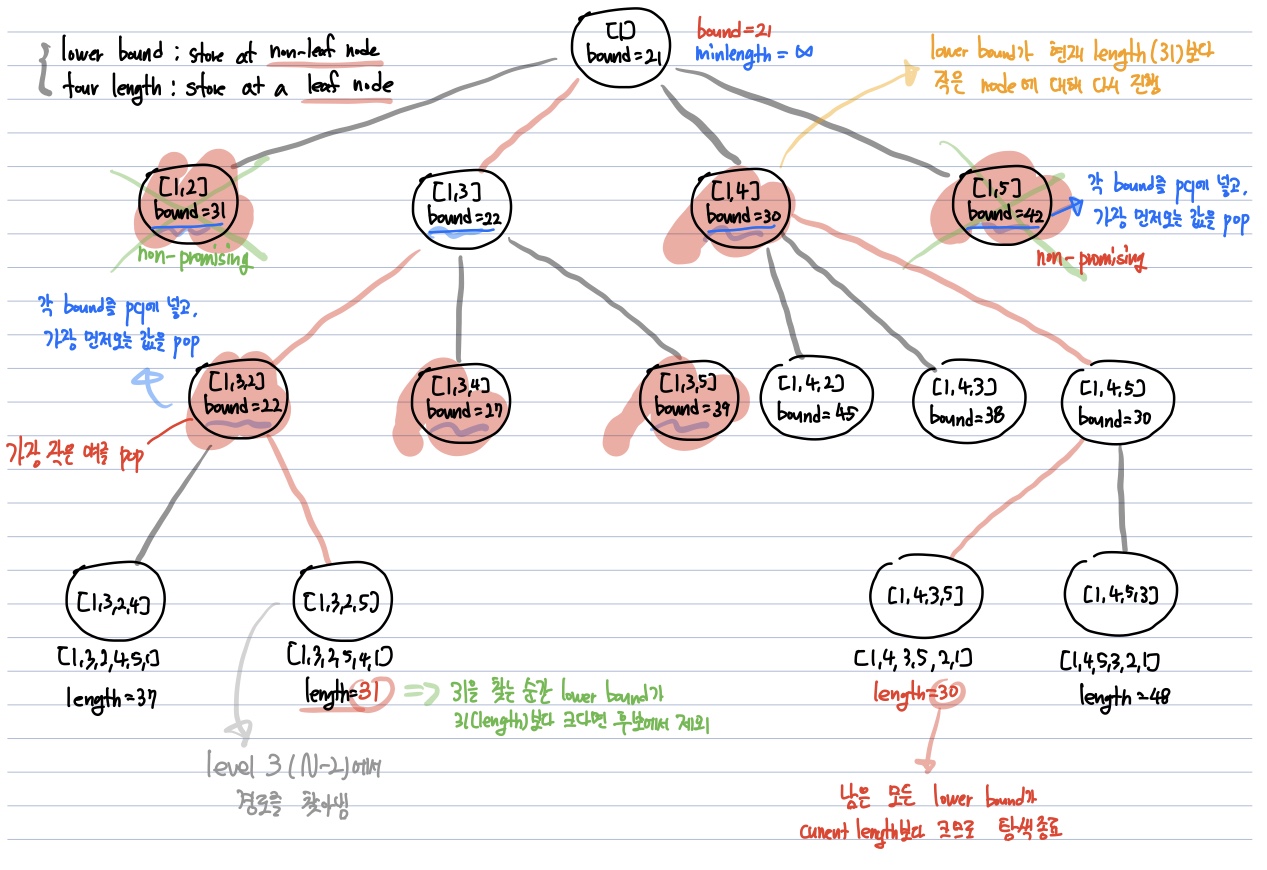 lower bound : store at non-leaf node
tour length : store at a leaf node
[1]
bound=21
bound=21
minlength = ∞
lower bound가 현재 length(31)보다
작은 node에 대해 다시 진행
[1,2]
bound=31
non-promising
[1,3]
bound=22
[1,4]
bound=30
[1,5]
bound=42
non-promising
각 bound를 pq에 넣고,
가장 먼저오는 값을 pop
각 bound를 pq에 넣고,
가장 먼저오는 값을 pop
[1,3,2]
bound=22
가장 작은 얘를 pop
[1,3,4]
bound=27
[1,3,5]
bound=39
[1,4,2]
bound=45
[1,4,3]
bound=38
[1,4,5]
bound=30
[1,3,2,4]
[1,3,2,4,5,1]
length=37
[1,3,2,5]
[1,3,2,5,4,1]
length=31
=> 31을 찾는 순간 lower bound가
31(length)보다 크다면 후보에서 제외
level 3 (N-2)에서
경로를 찾아냄
[1,4,3,5]
[1,4,3,5,2,1]
length=30
[1,4,5,3]
[1,4,5,3,2,1]
length=48
남은 모든 lower bound가
current length보다 크므로 탐색종료